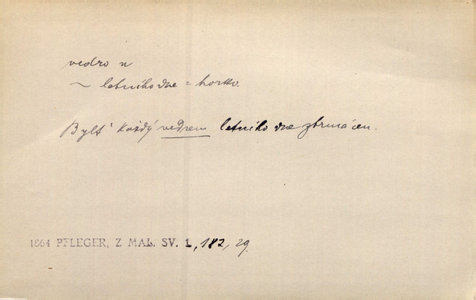 vedro n
~ letního dne = horko.
Bylť každý vedrem letního dne zhrnácen.
1864 PFLEGER, Z MAL. SV. 1, 182, 29.